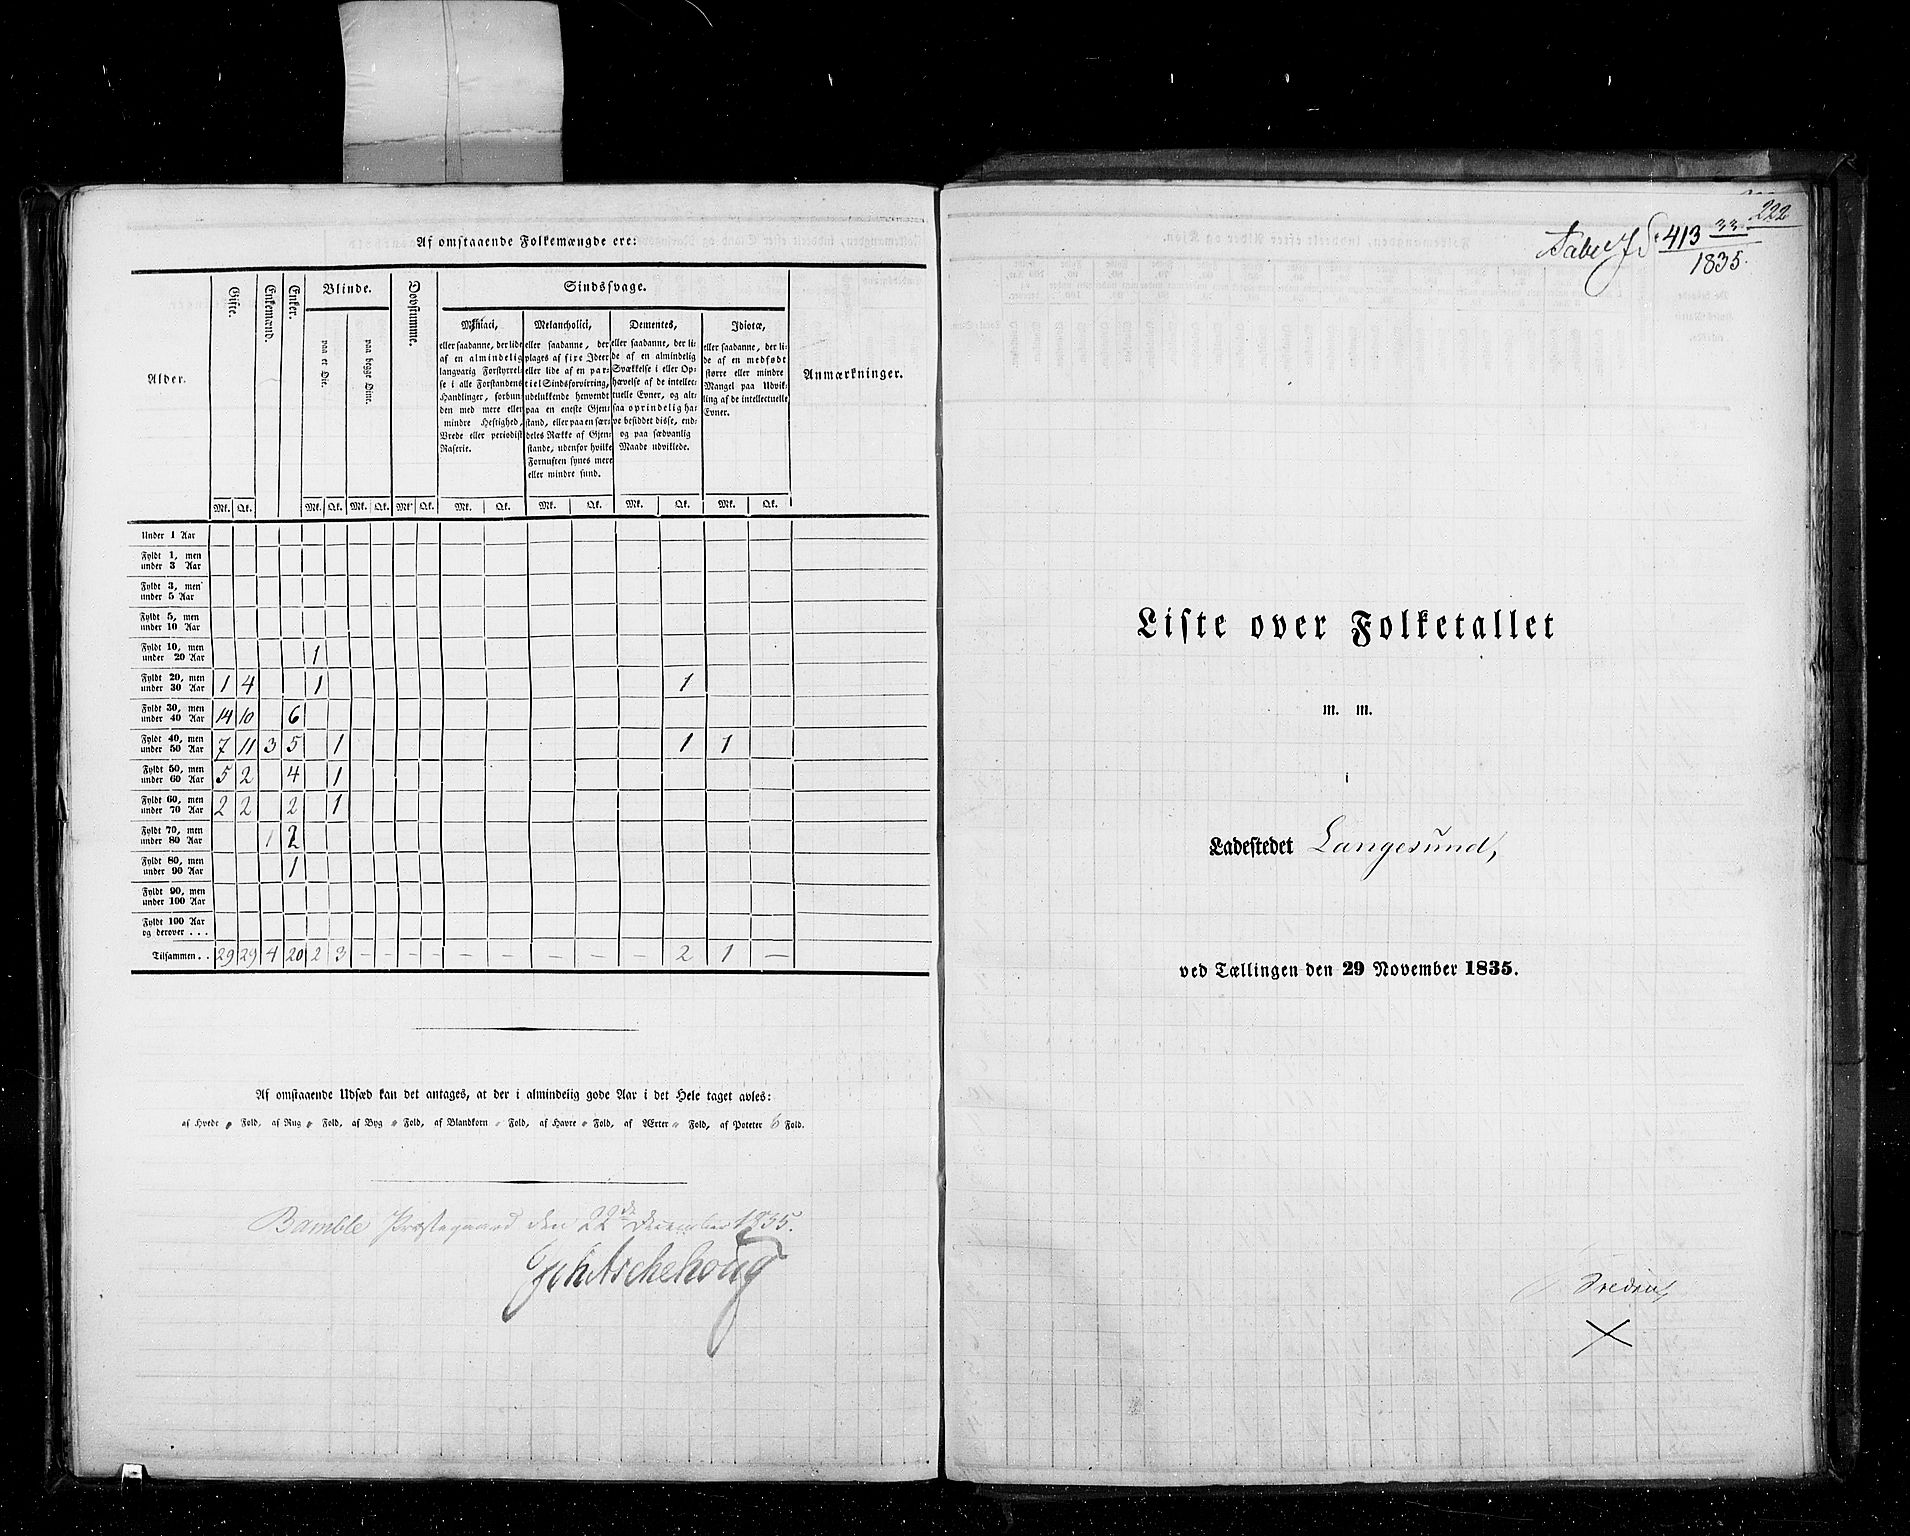 Af omstaaende Folkemængde ere:
Alder.
Gifte.
Enkemænd.
Enker.
Blinde.
paa et Øie.
paa begge Øine.
Døvstumme.
Sindssvage.
Maniaci,
eller saadanne, der lide
af en almindelig
langvarig Forstyrrel-
se i alle Forstandens
Handlinger, forbun-
den med mere eller
mindre Heftighed,
Vrede eller periodisk
Raserie.
Melancholici,
eller saadanne, der
plages af fixe Ideer
eller lide af en par-
tiel Sindsforvirring,
udelukkende henvendt
paa en eneste Gjen-
stand, eller paa en sær-
deles Række af Gjen-
stande, udenfor hvilke
Fornuften synes mere
eller mindre sund.
Dementes,
eller saadanne, der li-
de af en almindelig
Svækkelse i eller Op-
hævelse af de intellec-
tuelle Evner, og alt-
saa oprindelig ha-
ve besiddet disse, end-
og paa sædvanlig
Maade udviklede.
Idiotæ,
eller saadanne, der li-
de af en medfødt
større eller mindre
Mangel paa Udvik-
ling af de intellectuelle
Evner.
Anmærkninger.
Mk. Qk. Mk. Qk. Mk. Qk. Mk. Qk. Mk. Qk. Mk. Qk. Mk. Qk. Mk. Qk.
Under 1 Aar
Fyldt 1, men
under 3 Aar
Fyldt 3, men
under 5 Aar
Fyldt 5, men
under 10 Aar
Fyldt 10, men
under 20 Aar 1
Fyldt 20, men
under 30 Aar 1 4 1 1
Fyldt 30, men
under 40 Aar 14 10 6
Fyldt 40, men
under 50 Aar 7 11 3 5 1 1 1
Fyldt 50, men
under 60 Aar 5 2 4 1
Fyldt 60, men
under 70 Aar 2 2 2 1
Fyldt 70, men
under 80 Aar 1 2
Fyldt 80, men
under 90 Aar 1
Fyldt 90, men
under 100 Aar
Fyldt 100 Aar
og derover . . .
Tilsammen . . 29 29 4 20 2 3 – – – – – – – – – 2 1 –
Af omstaaende Udsæd kan det antages, at der i almindelig gode Aar i det Hele taget avles:
af Hvede " Fold, af Rug " Fold, af Byg " Fold, af Blandkorn " Fold, af Havre " Fold, af Ærter " Fold, af Poteter 6 Fold.
Bamble Præstegaard den 22de December 1835.
222
413 33
1835.
Liste over Folketallet
m. m.
i
Ladestedet Langesund,
ved Tællingen den 29 November 1835.